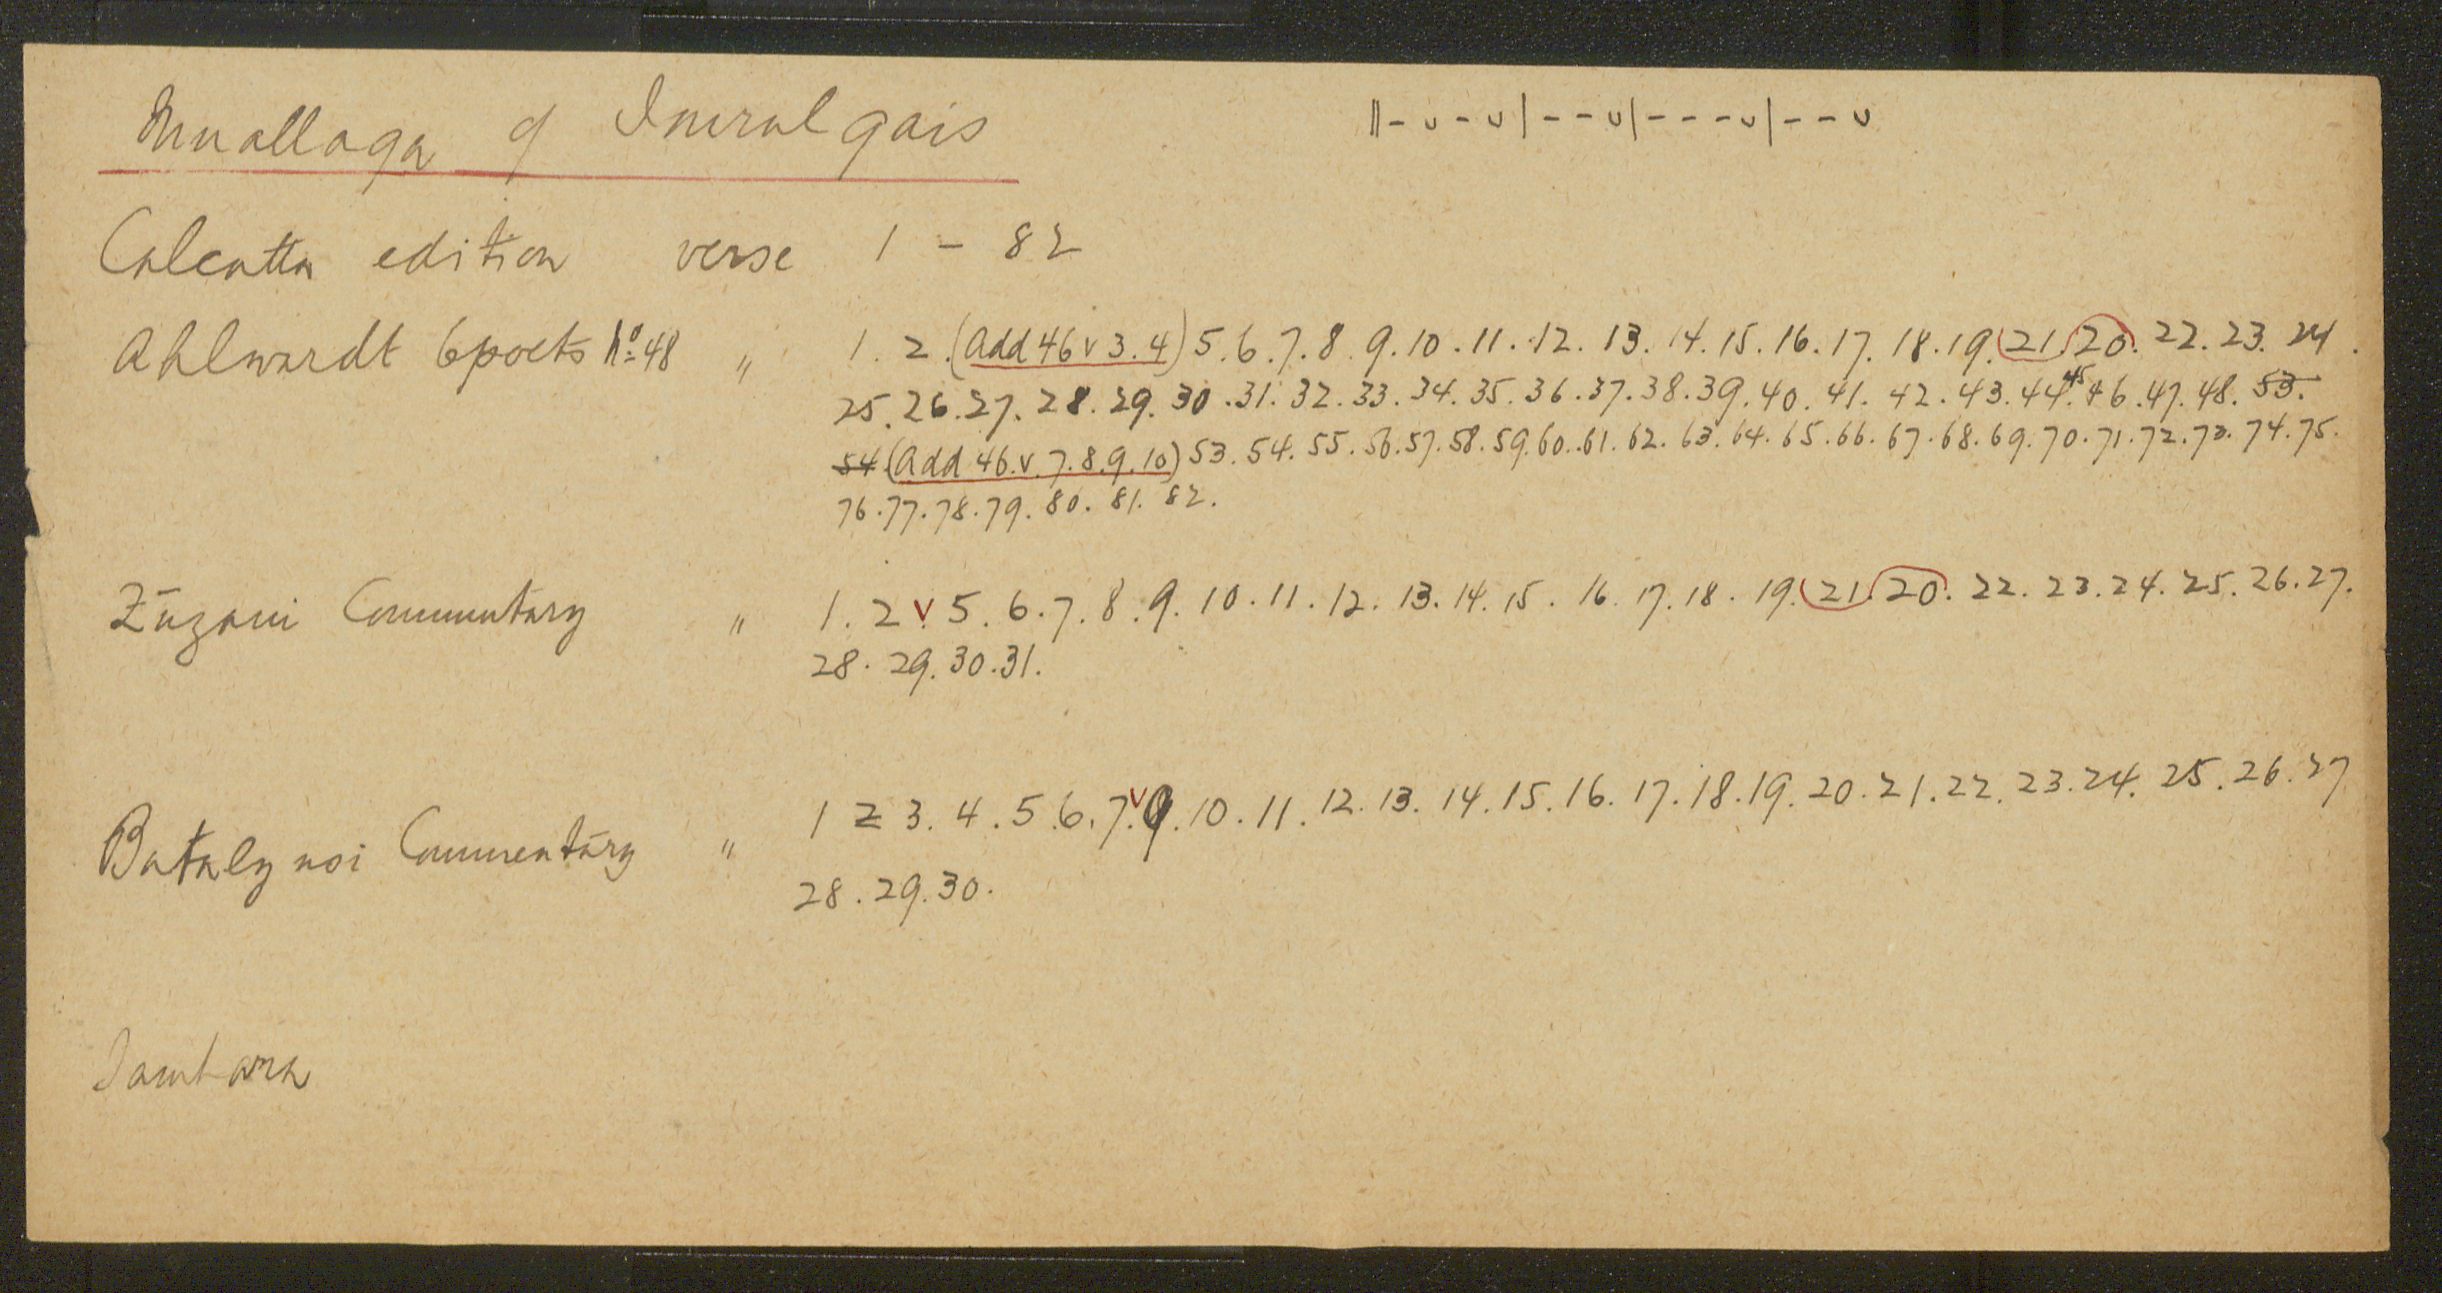 Muallaqa of Imrulqais ‖-υ-υ|--υ|---υ|--υ
Calcutta edition verse 1 - 82
Ahlwardt 6 poets No 48 " 1. 2. (Add 46 v 3. 4) 5. 6. 7. 8. 9. 10. 11. 12. 13. 14. 15. 16. 17. 18. 19. 21. 20. 22. 23. 24.
25. 26. 27. 28. 29. 30. 31. 32. 33. 34. 35. 36. 37. 38. 39. 40. 41. 42. 43. 44. 45. 46. 47. 48. 53.
54 (Add 46. v. 7. 8. 9. 10) 53. 54. 55. 56. 57. 58. 59. 60. 61. 62. 63. 64. 65. 66. 67. 68. 69. 70. 71. 72. 73. 74. 75.
76. 77. 78. 79. 80. 81. 82.
Zūzani Commentary " 1. 2 v 5. 6. 7. 8. 9. 10. 11. 12. 13. 14. 15. 16. 17. 18. 19. 21. 20. 22. 23. 24. 25. 26. 27.
28. 29. 30. 31.
Batalyusi Commentary " 1 2 3. 4. 5. 6. 7. v 9. 10. 11. 12. 13. 14. 15. 16. 17. 18. 19. 20. 21. 22. 23. 24. 25. 26. 27
28. 29. 30.
Jamhara